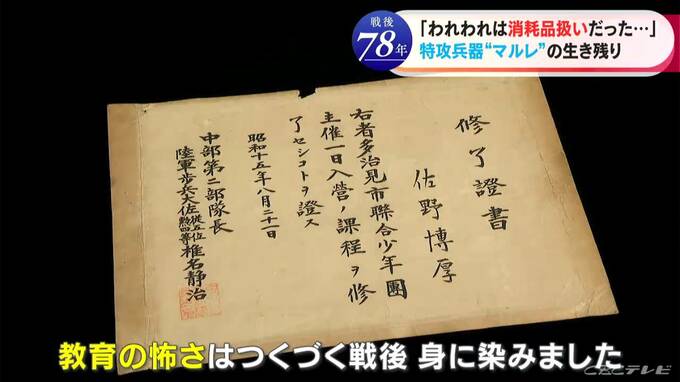 戦後
78年
「われわれは消耗品扱いだった…」
特攻兵器“マルレ”の生き残り
修了證書
佐野博厚
右者多治見市聯合少年團
主催一日入營ノ課程ヲ修
了セシコトヲ證ス
昭和十五年八月二十一日
中部第二部隊長
陸軍歩兵大佐從五位勲四等椎名静治
教育の怖さはつくづく戦後 身に染みました
CBCテレビ